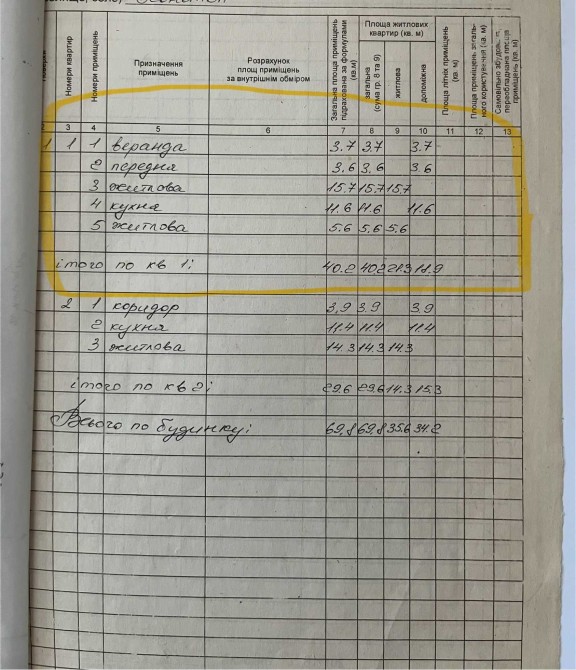 Номери квартир
Номери приміщень
Призначення
приміщень
Розрахунок
площ приміщень
за внутрішнім обміром
Загальна площа приміщень
підрахована за формулами
(кв.м)
Площа житлових
квартир (кв. м)
загальна
(сума гр. 8 та 9)
житлова
допоміжна
Площа літніх приміщень
(кв. м)
Площа приміщень загаль-
ного користування (кв. м)
приміщень (кв. м)
2 3 4 5 6 7 8 9 10 11 12 13
1 1 1 веранда 3.7 3.7 3.7
2 передня 3.6 3.6 3.6
3 житлова 15.7 15.7 15.7
4 кухня 11.6 11.6 11.6
5 житлова 5.6 5.6 5.6
ітого по кв 1: 40.2 40.2 21.3 18.9
2 1 коридор 3,9 3.9 3.9
2 кухня 11.4 11.4 11.4
3 житлова 14.3 14.3 14.3
ітого по кв 2: 29.6 29.6 14.3 15.3
Всього по будинку: 69.8 69.8 35.6 34.2